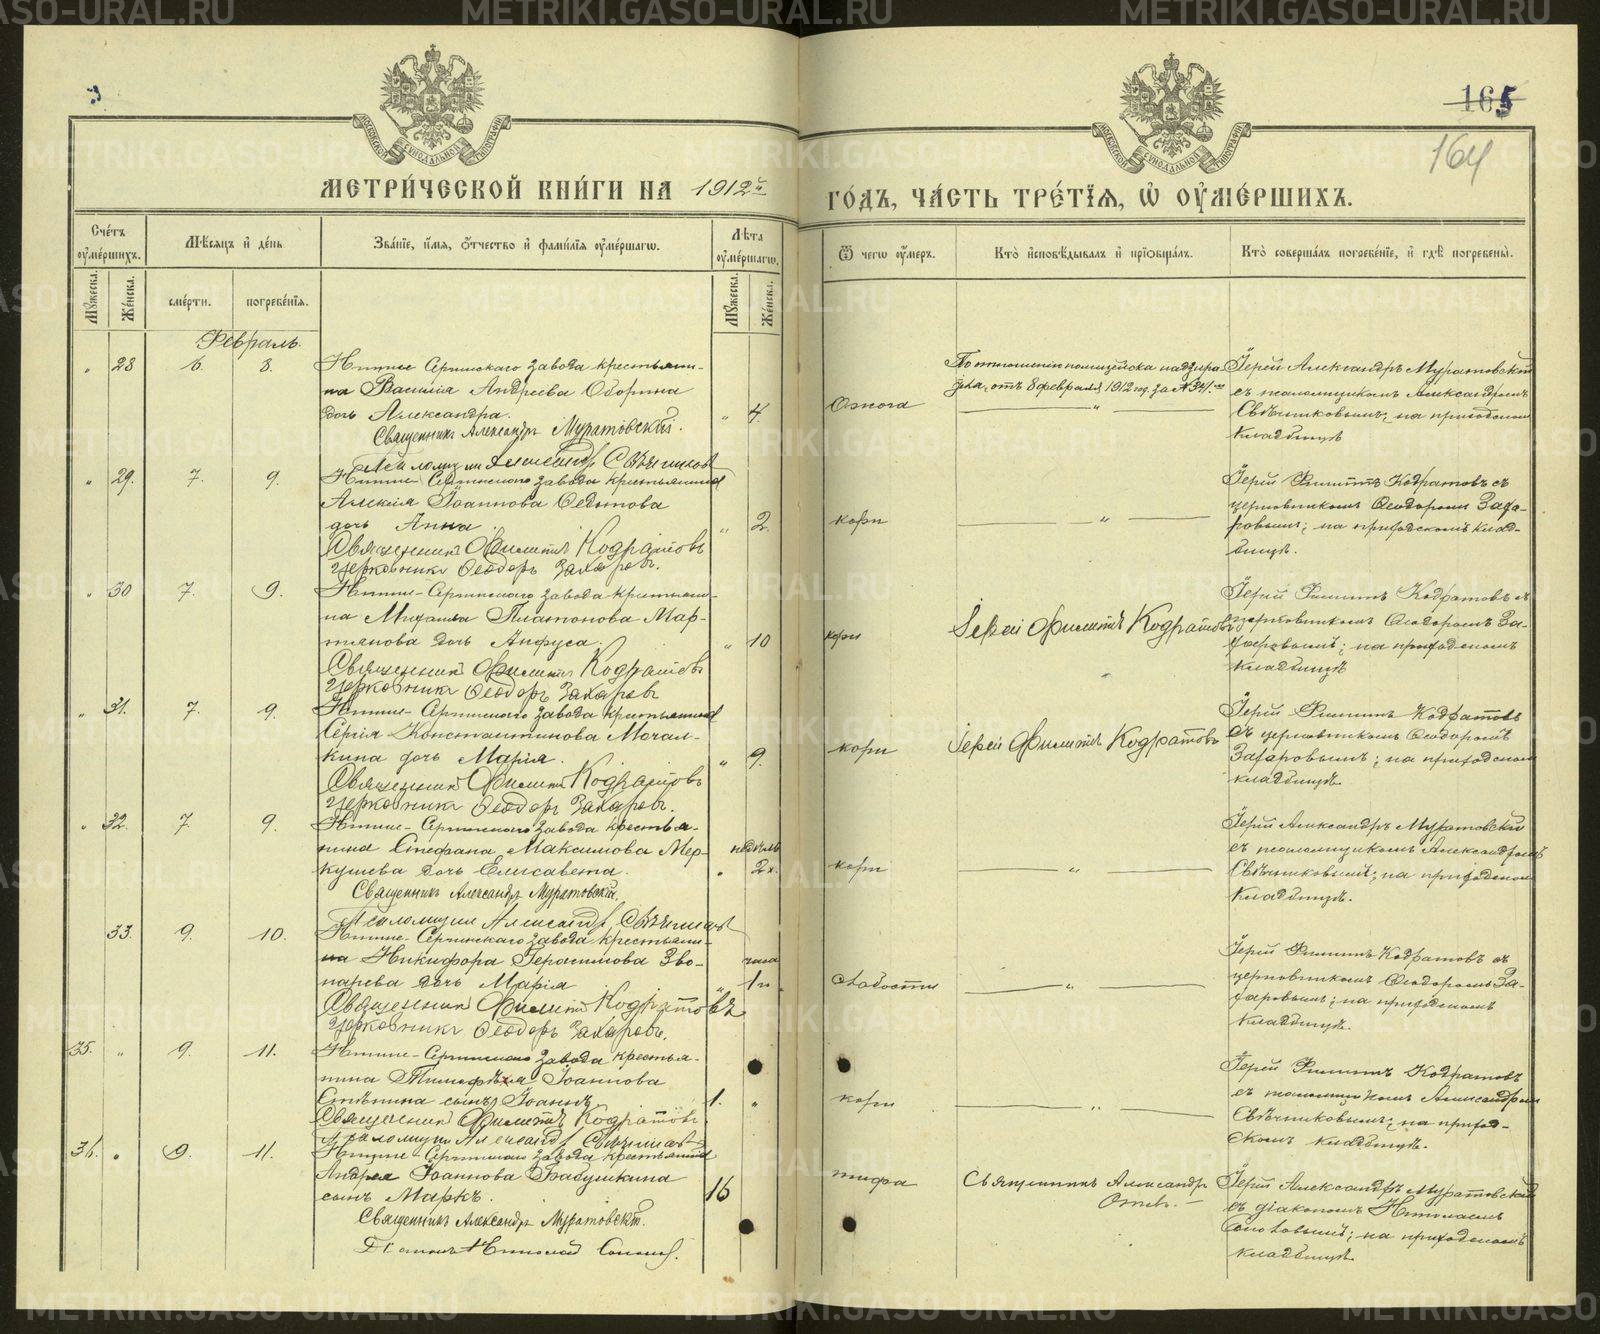 METRIKI.GASO-URAL.RU
165
164
МОСКОВСКОЙ СѴНОДАЛЬНОЙ ТИПОГРАФІИ
МОСКОВСКОЙ СѴНОДАЛЬНОЙ ТИПОГРАФІИ
МЕТРИ́ЧЕСКОЙ КНИ́ГИ НА 1912й
ГО́ДЪ, ЧА́СТЬ ТРЕ́ТІѦ, Ѡ҆ ОУ҆МЕ́РШИХЪ.
Сче́тъ оу҆ме́ршихъ.
Мѣ́сяцъ и҆ де́нь
Зва́нїе, и҆́мѧ, ѻ҆́тчество и҆ фами́лїѧ оу҆ме́ршагѡ.
Лѣ́та оу҆ме́ршагѡ.
Мꙋ́жеска.
Же́нска.
сме́рти.
погребе́нїѧ.
Мꙋ́жеска.
Же́нска.
Ѿ чегѡ̀ оу҆́меръ.
Кто̀ и҆сповѣ́дывалъ и҆ прїѡбща́лъ.
Кто̀ соверша́лъ погребе́нїе, и҆ гдѣ̀ погребены̀.
Февраль.
" 28 6. 8.
Нижне Сергинскаго завода крестьяни-
на Василія Андреева Оборина
дочь Александра.
" 4.
Священникъ Александръ Муратовскій.
Псаломщикъ Александръ Свѣчниковъ
Ожога
По отношенію полицейска надзира
теля, отъ 8 февраля 1912 год. за №
"
Іерей Александръ Муратовскій
съ псаломщикомъ Александромъ
Свѣчниковымъ; на приходскомъ
кладбищѣ
" 29. 7. 9.
Нижне Сергинскаго завода крестьянина
Алексія Іоаннова Федотова
дочь Анна.
" 2.
Священникъ Филиппъ Кодратовъ
Церковникъ Ѳеодоръ Захаровъ.
кори
"
Іерей Филиппъ Кодратовъ съ
церковникомъ Ѳеодоромъ Заха-
ровымъ; на приходскомъ клад-
бищѣ.
" 30 7. 9.
Нижне-Сергинскаго завода крестьяни-
на Михаила Платонова Мар-
тьянова дочь Анфуса.
" 10
Священникъ Филиппъ Кодратовъ
Церковникъ Ѳеодоръ Захаровъ
кори
Іерей Филиппъ Кодратовъ
Іерей Филиппъ Кодратовъ съ
церковникомъ Ѳеодоромъ За-
харовымъ; на приходскомъ
кладбищѣ
" 31. 7. 9.
Нижне-Сергинскаго завода крестьянина
Сергія Константинова Мочал-
кина дочь Марія.
" 9.
Священникъ Филиппъ Кодратовъ
Церковникъ Ѳеодоръ Захаровъ.
кори
Іерей Филиппъ Кодратовъ
Іерей Филиппъ Кодратовъ
съ церковникомъ Ѳеодоромъ
Захаровымъ; на приходскомъ
кладбищѣ.
" 32. 7. 9.
Нижне-Сергинскаго завода крестья-
нина Стефана Максимова Мер-
кушева дочь Елисавета.
недѣль
" 2х.
Священникъ Александръ Муратовскій.
Псаломщикъ Александръ Свѣчниковъ
кори
"
Іерей Александръ Муратовскій
съ псаломщикомъ Александромъ
Свѣчниковымъ; на приходскомъ
кладбищѣ.
33. 9. 10.
Нижне-Сергинскаго завода крестьяни-
на Никифора Герасимова Зво-
нарева дочь Марія
часа
Священникъ Филиппъ Кодратовъ
Церковникъ Ѳеодоръ Захаровъ.
слабости
"
Іерей Филиппъ Кодратовъ съ
церковникомъ Ѳеодоромъ За-
харовымъ; на приходскомъ
кладбищѣ.
35. " 9. 11.
Нижне-Сергинскаго завода крестья-
нина Тимоѳея Іоаннова
сынъ Іоаннъ.
1. "
Священникъ Филиппъ Кодратовъ.
Псаломщикъ Александръ Свѣчниковъ
кори
"
Іерей Филиппъ Кодратовъ
съ псаломщикомъ Александромъ
Свѣчниковымъ; на приход-
скомъ кладбищѣ.
36. " 9. 11.
Нижне-Сергинскаго завода крестьянина
Андрея Іоаннова Бабушкина
сынъ Маркъ.
16
Священникъ Александръ Муратовскій.
Діаконъ Николай
тифа
Священникъ Александръ
Іерей Александръ Муратовскій
съ діакономъ Николаемъ
на приходскомъ
кладбищѣ.